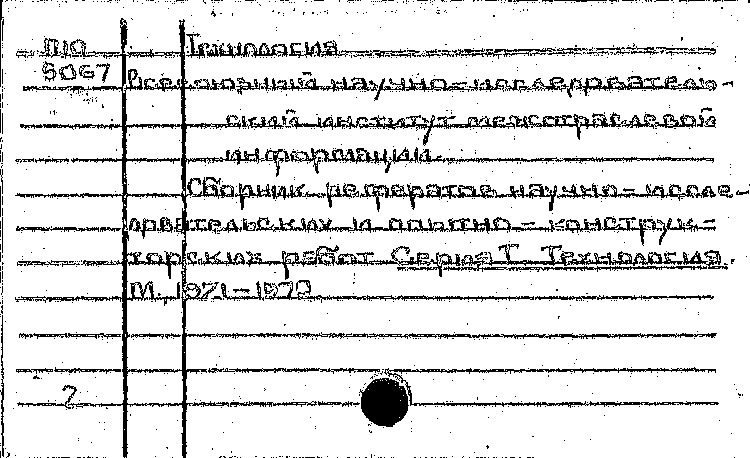 П10 Технология
5067 Всесоюзный научно-исследователь-
ский институт межотраслевой
информации.
Сборник рефератов научно-иссле-
довательских и опытно-конструк-
торских работ Серия Т. Технология.
М., 1971-1973
2